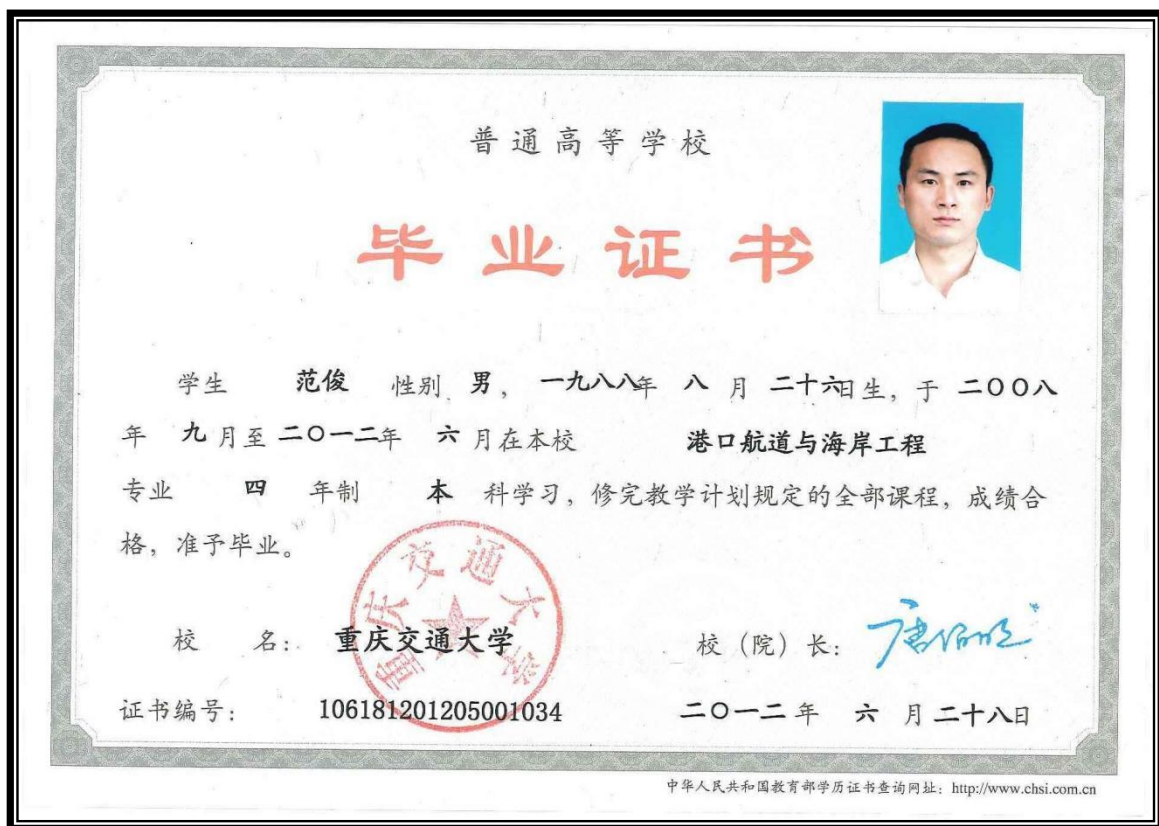 普通高等学校
毕业证书
学生 范俊 性别 男，一九八八年 八 月 二十六日生，于 二〇〇八
年 九 月至 二〇一二年 六 月在本校 港口航道与海岸工程
专业 四 年制 本 科学习，修完教学计划规定的全部课程，成绩合
格，准予毕业。
重庆交通大学
校 名： 重庆交通大学 校（院）长： 唐伯明
证书编号： 106181201205001034 二〇一二 年 六 月 二十八日
中华人民共和国教育部学历证书查询网址：http://www.chsi.com.cn